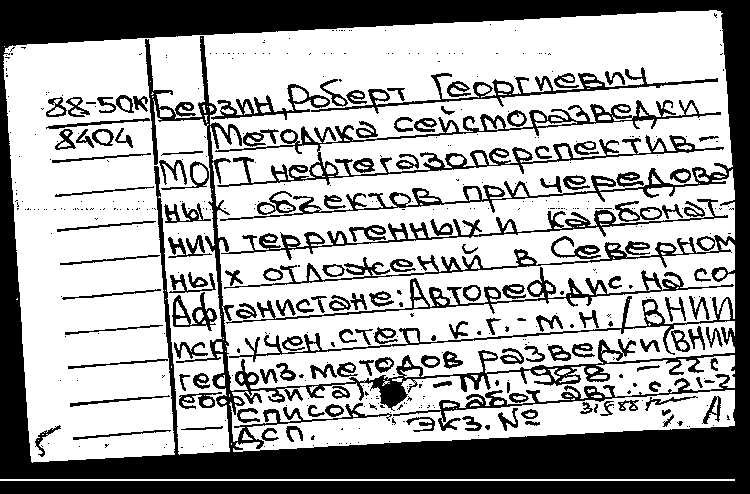 88-50к Берзин, Роберт Георгиевич.
8404 Методика сейсморазведки
МОГТ нефтегазоперспектив-
ных объектов при чередова
нии терригенных и карбонат-
ных отложений в Северном
Афганистане: Автореф. дис. на со-
иск. учен. степ. к.г.-м.н. / ВНИИ
геофиз. методов разведки (ВНИИ
еофизика). - М., 1988. - 22 с.
список работ авт.: с. 21-2
Дсп. Экз. №